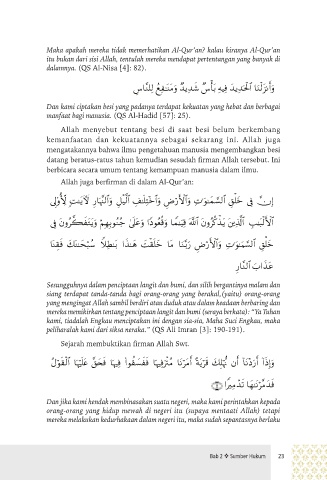 Maka apakah mereka tidak memerhatikan Al-Qur'an? kalau kiranya Al-Qur'an
itu bukan dari sisi Allah, tentulah mereka mendapat pertentangan yang banyak di
dalamnya. (QS Al-Nisa [4]: 82).
وَأَنزَلْنَا ٱلْحَدِيدَ فِيهِ بَأْسٌ شَدِيدٌ وَمَنَـٰفِعُ لِلنَّاسِ
Dan kami ciptakan besi yang padanya terdapat kekuatan yang hebat dan berbagai
manfaat bagi manusia. (QS Al-Hadid [57]: 25).
Allah menyebut tentang besi di saat besi belum berkembang
kemanfaatan dan kekuatannya sebagai sekarang ini. Allah juga
mengatakannya bahwa ilmu pengetahuan manusia mengembangkan besi
datang beratus-ratus tahun kemudian sesudah firman Allah tersebut. Ini
berbicara secara umum tentang kemampuan manusia dalam ilmu.
Allah juga berfirman di dalam Al-Qur'an:
إِنَّ فِى خَلْقِ ٱلسَّمَـٰوَٰتِ وَٱلْأَرْضِ وَٱخْتِلَـٰفِ ٱلَّيْلِ وَٱلنَّهَارِ لَـَٔايَـٰتٍ لِّأُو۟لِى
ٱلْأَلْبَـٰبِ ٱلَّذِينَ يَذْكُرُونَ ٱللَّهَ قِيَـٰمًا وَقُعُودًا وَعَلَىٰ جُنُوبِهِمْ وَيَتَفَكَّرُونَ فِى
خَلْقِ ٱلسَّمَـٰوَٰتِ وَٱلْأَرْضِ رَبَّنَا مَا خَلَقْتَ هَـٰذَا بَـٰطِلًا سُبْحَـٰنَكَ فَقِنَا
عَذَابَ ٱلنَّارِ
Sesungguhnya dalam penciptaan langit dan bumi, dan silih bergantinya malam dan
siang terdapat tanda-tanda bagi orang-orang yang berakal,(yaitu) orang-orang
yang mengingat Allah sambil berdiri atau duduk atau dalam keadaan berbaring dan
mereka memikirkan tentang penciptaan langit dan bumi (seraya berkata): "Ya Tuhan
kami, tiadalah Engkau menciptakan ini dengan sia-sia, Maha Suci Engkau, maka
peliharalah kami dari siksa neraka." (QS Ali Imran [3]: 190-191).
Sejarah membuktikan firman Allah Swt.
وَإِذَآ أَرَدْنَآ أَن نُّهْلِكَ قَرْيَةً أَمَرْنَا مُتْرَفِيهَا فَفَسَقُوا۟ فِيهَا فَحَقَّ عَلَيْهَا ٱلْقَوْلُ
فَدَمَّرْنَـٰهَا تَدْمِيرًا
Dan jika kami hendak membinasakan suatu negeri, maka kami perintahkan kepada
orang-orang yang hidup mewah di negeri itu (supaya mentaati Allah) tetapi
mereka melakukan kedurhakaan dalam negeri itu, maka sudah sepantasnya berlaku
Bab 2 ❖ Sumber Hukum 23